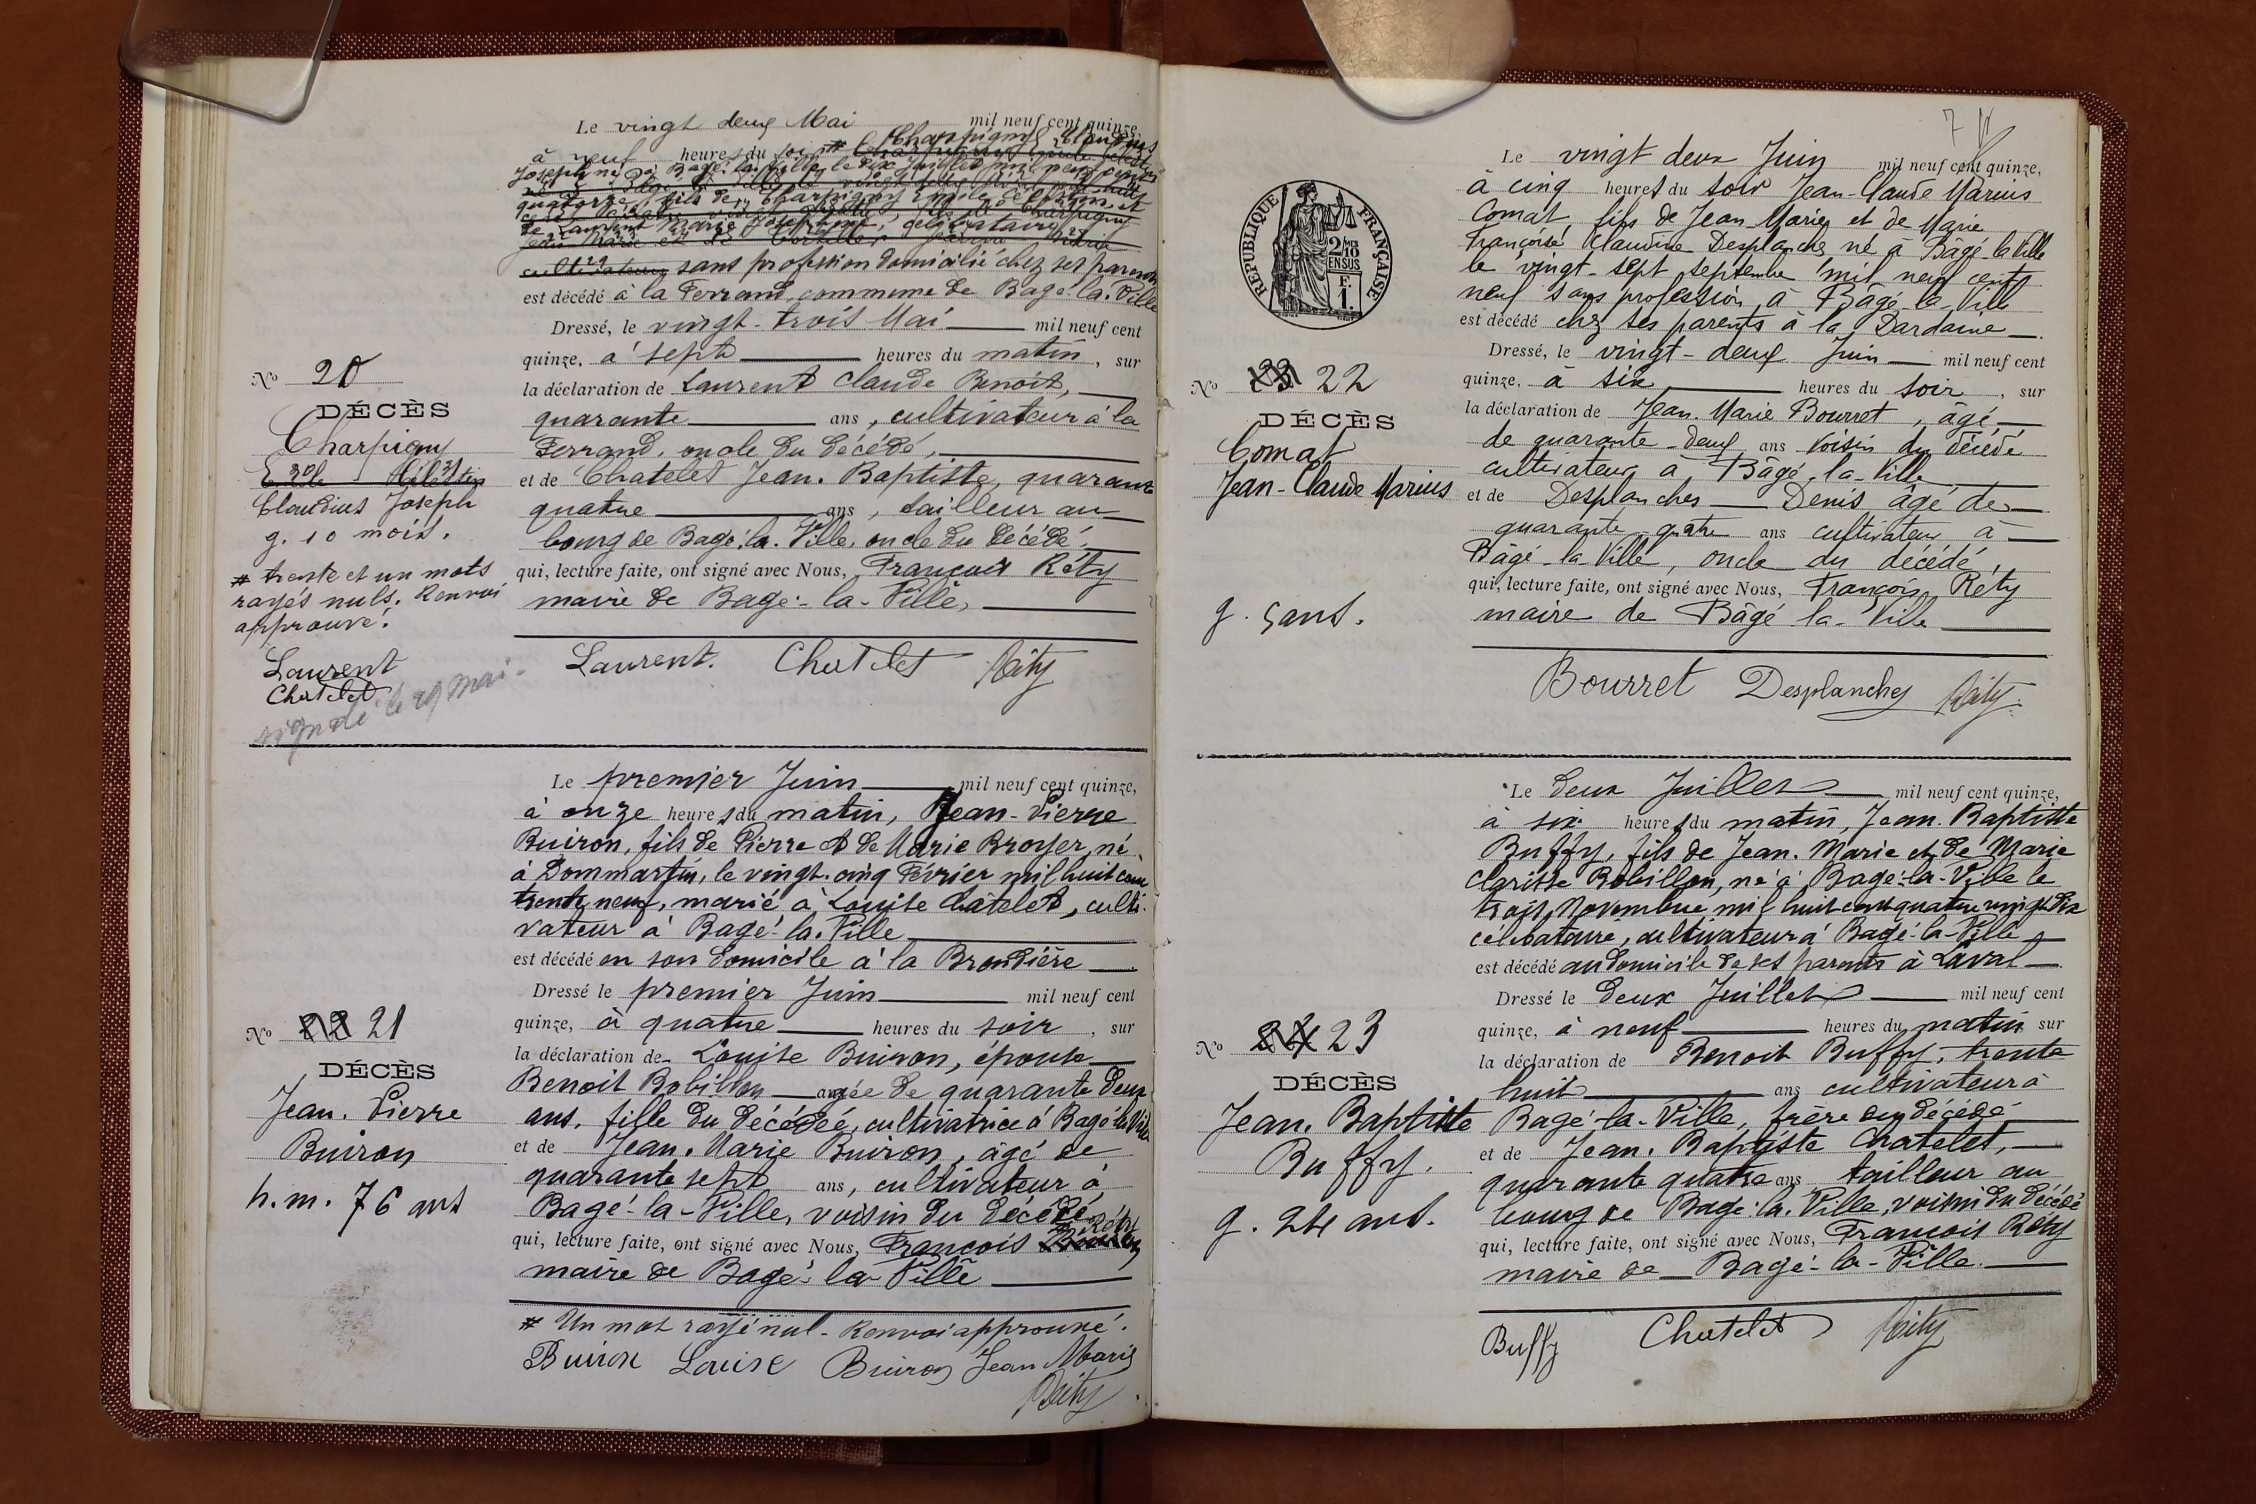 Le vingt deux Mai mil neuf cent quinze,
à neuf heures du soir # Charpigny Claudius
Joseph né à Bagé-la-Ville le dix Juillet mil neuf cent
quatorze, fils de Charpigny Emile Célestin, et
de Laurent Marie Joséphine, célibataire
sans profession domicilié chez ses parents
est décédé à la Ferrand, commune de Bagé-la-Ville
Dressé, le vingt-trois Mai mil neuf cent
quinze, à sept heures du matin, sur
la déclaration de Laurent Claude Benoit,
quarante ans, cultivateur à la
Ferrand, oncle du décédé,
et de Chatelet Jean-Baptiste, quarante
quatre ans, tailleur au
bourg de Bagé-la-Ville, oncle du décédé
qui, lecture faite, ont signé avec Nous, François Réty
maire de Bagé-la-Ville,
Laurent. Chatelet Réty
No 20
DÉCÈS
Charpigny
Claudius Joseph
g. 10 mois.
# trente et un mots
rayés nuls. Renvoi
approuvé.
Laurent
Chatelet
signalé le 29 mai
Le premier Juin mil neuf cent quinze,
à onze heures du matin, Jean-Pierre
Buiron, fils de Pierre et de Marie Broyer, né
à Dommartin, le vingt-cinq Février mil huit cent
trente neuf, marié à Louise Châtelet, culti-
vateur à Bagé-la-Ville
est décédé en son domicile à la Brondière
Dressé le premier Juin mil neuf cent
quinze, à quatre heures du soir, sur
la déclaration de Louise Buiron, épouse
Benoit Robillon âgée de quarante deux
ans, fille du décédé, cultivatrice à Bagé-la-Ville
et de Jean-Marie Buiron, âgé de
quarante sept ans, cultivateur à
Bagé-la-Ville, voisin du décédé
qui, lecture faite, ont signé avec Nous, François # Réty
maire de Bagé-la-Ville
# Un mot rayé nul - Renvoi approuvé.
Buiron Louise Buiron Jean Marie
Réty
No 22 21
DÉCÈS
Jean-Pierre
Buiron
h.m. 76 ans
7
RÉPUBLIQUE FRANÇAISE
2/10 EN SUS
F. 1.
Le vingt deux Juin mil neuf cent quinze,
à cinq heures du soir Jean-Claude Marius
Comat, fils de Jean Marie et de Marie
Françoise Claudine Desplanches né à Bâgé-la-Ville
le vingt-sept septembre mil neuf cent
neuf sans profession à Bâgé-la-Ville
est décédé chez ses parents à la Dardaine
Dressé, le vingt-deux Juin mil neuf cent
quinze, à six heures du soir, sur
la déclaration de Jean-Marie Bourret, âgé
de quarante-deux ans voisin du décédé
cultivateur à Bâgé-la-Ville
et de Desplanches Denis âgé de
quarante-quatre ans cultivateur à
Bâgé-la-Ville, oncle du décédé,
qui, lecture faite, ont signé avec Nous, François Réty
maire de Bâgé-la-Ville
Bourret Desplanches Réty.
No 23 22
DÉCÈS
Comat
Jean-Claude Marius
g. 5 ans.
Le deux Juillet mil neuf cent quinze,
à six heures du matin, Jean-Baptiste
Buffy, fils de Jean-Marie et de Marie
Clarisse Robillon, né à Bagé-la-Ville le
trois Novembre mil huit cent quatre vingt dix
célibataire, cultivateur à Bagé-la-Ville
est décédé au domicile de ses parents à Laval
Dressé le deux Juillet mil neuf cent
quinze, à neuf heures du matin sur
la déclaration de Benoit Buffy, trente
huit ans cultivateur à
Bagé-la-Ville, frère du décédé
et de Jean-Baptiste Chatelet,
quarante quatre ans, tailleur au
bourg de Bagé-la-Ville, voisin du décédé
qui, lecture faite, ont signé avec Nous, François Réty
maire de Bagé-la-Ville.
Buffy Chatelet Réty
No 24 23
DÉCÈS
Jean-Baptiste
Buffy.
g. 24 ans.